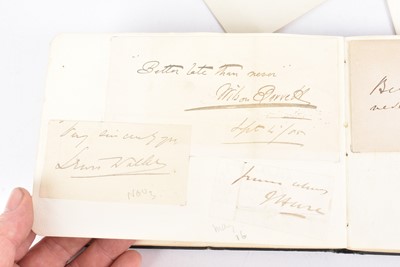 "Better late than never"
Wilson Barrett
Sept 4/00
Very sincerely yrs
Lewis Waller
yours always
J Hare
Be